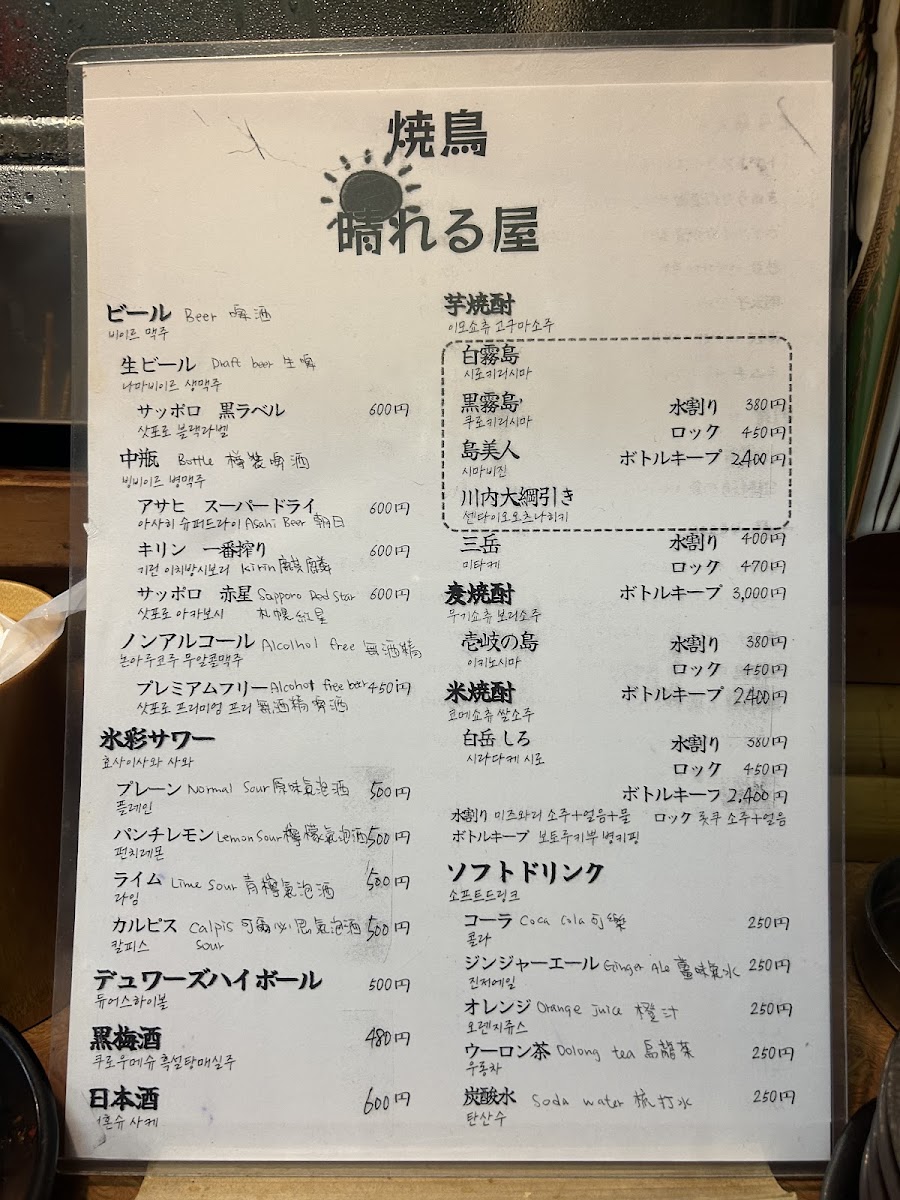 焼鳥
晴れる屋
ビール Beer 啤酒
비이르 맥주
生ビール Draft beer 生啤
나마비이르 생맥주
サッポロ 黒ラベル 600円
삿포로 블랙라벨
中瓶 Bottle 樽裝啤酒
빙비이르 병맥주
アサヒ スーパードライ 600円
아사히 슈퍼드라이 Asahi Beer 朝日
キリン 一番搾り 600円
기린 이치방시보리 Kirin 麒麟
サッポロ 赤星 Sapporo Red Star 600円
삿포로 아카보시 札幌紅星
ノンアルコール Alcolhol free 無酒精
논아루코루 무알콜맥주
プレミアムフリー Alcohol free beer 450円
삿포로 프리미엄 프리 無酒精啤酒
氷彩サワー
효사이사와 사와
プレーン Normal Sour 原味氣泡酒 500円
플레인
パンチレモン Lemon Sour 檸檬氣泡酒 500円
펀치레몬
ライム Lime Sour 青檸氣泡酒 500円
라임
カルピス Calpis 可爾必思氣泡酒 500円
칼피스 Sour
デュワーズハイボール 500円
듀어스하이볼
黒梅酒 480円
쿠로우메슈 흑설탕매실주
日本酒 600円
혼슈 사케
芋焼酎
이모쇼츄 고구마소주
白霧島
시로키리시마
黒霧島 水割り 380円
쿠로키리시마
ロック 450円
島美人 ボトルキープ 2,400円
시마비진
川内大綱引き
센다이오오츠나히키
三岳 水割り 400円
미타케 ロック 470円
麦焼酎 ボトルキープ 3,000円
무기쇼츄 보리소주
壱岐の島 水割り 380円
이키노시마
ロック 450円
米焼酎 ボトルキープ 2,400円
코메쇼츄 쌀소주
白岳しろ 水割り 380円
시라다케 시로
ロック 450円
ボトルキープ 2,400円
水割り 미즈와리 소주+얼음+물 ロック 롯쿠 소주+얼음
ボトルキープ 보토루키부 병키핑
ソフトドリンク
소프트드링크
コーラ Coca Cola 可樂 250円
콜라
ジンジャーエール Ginger Ale 薑味氣水 250円
진저에일
オレンジ Orange juice 橙汁 250円
오렌지쥬스
ウーロン茶 Oolong tea 烏龍茶 250円
우롱차
炭酸水 Soda water 梳打水 250円
탄산수